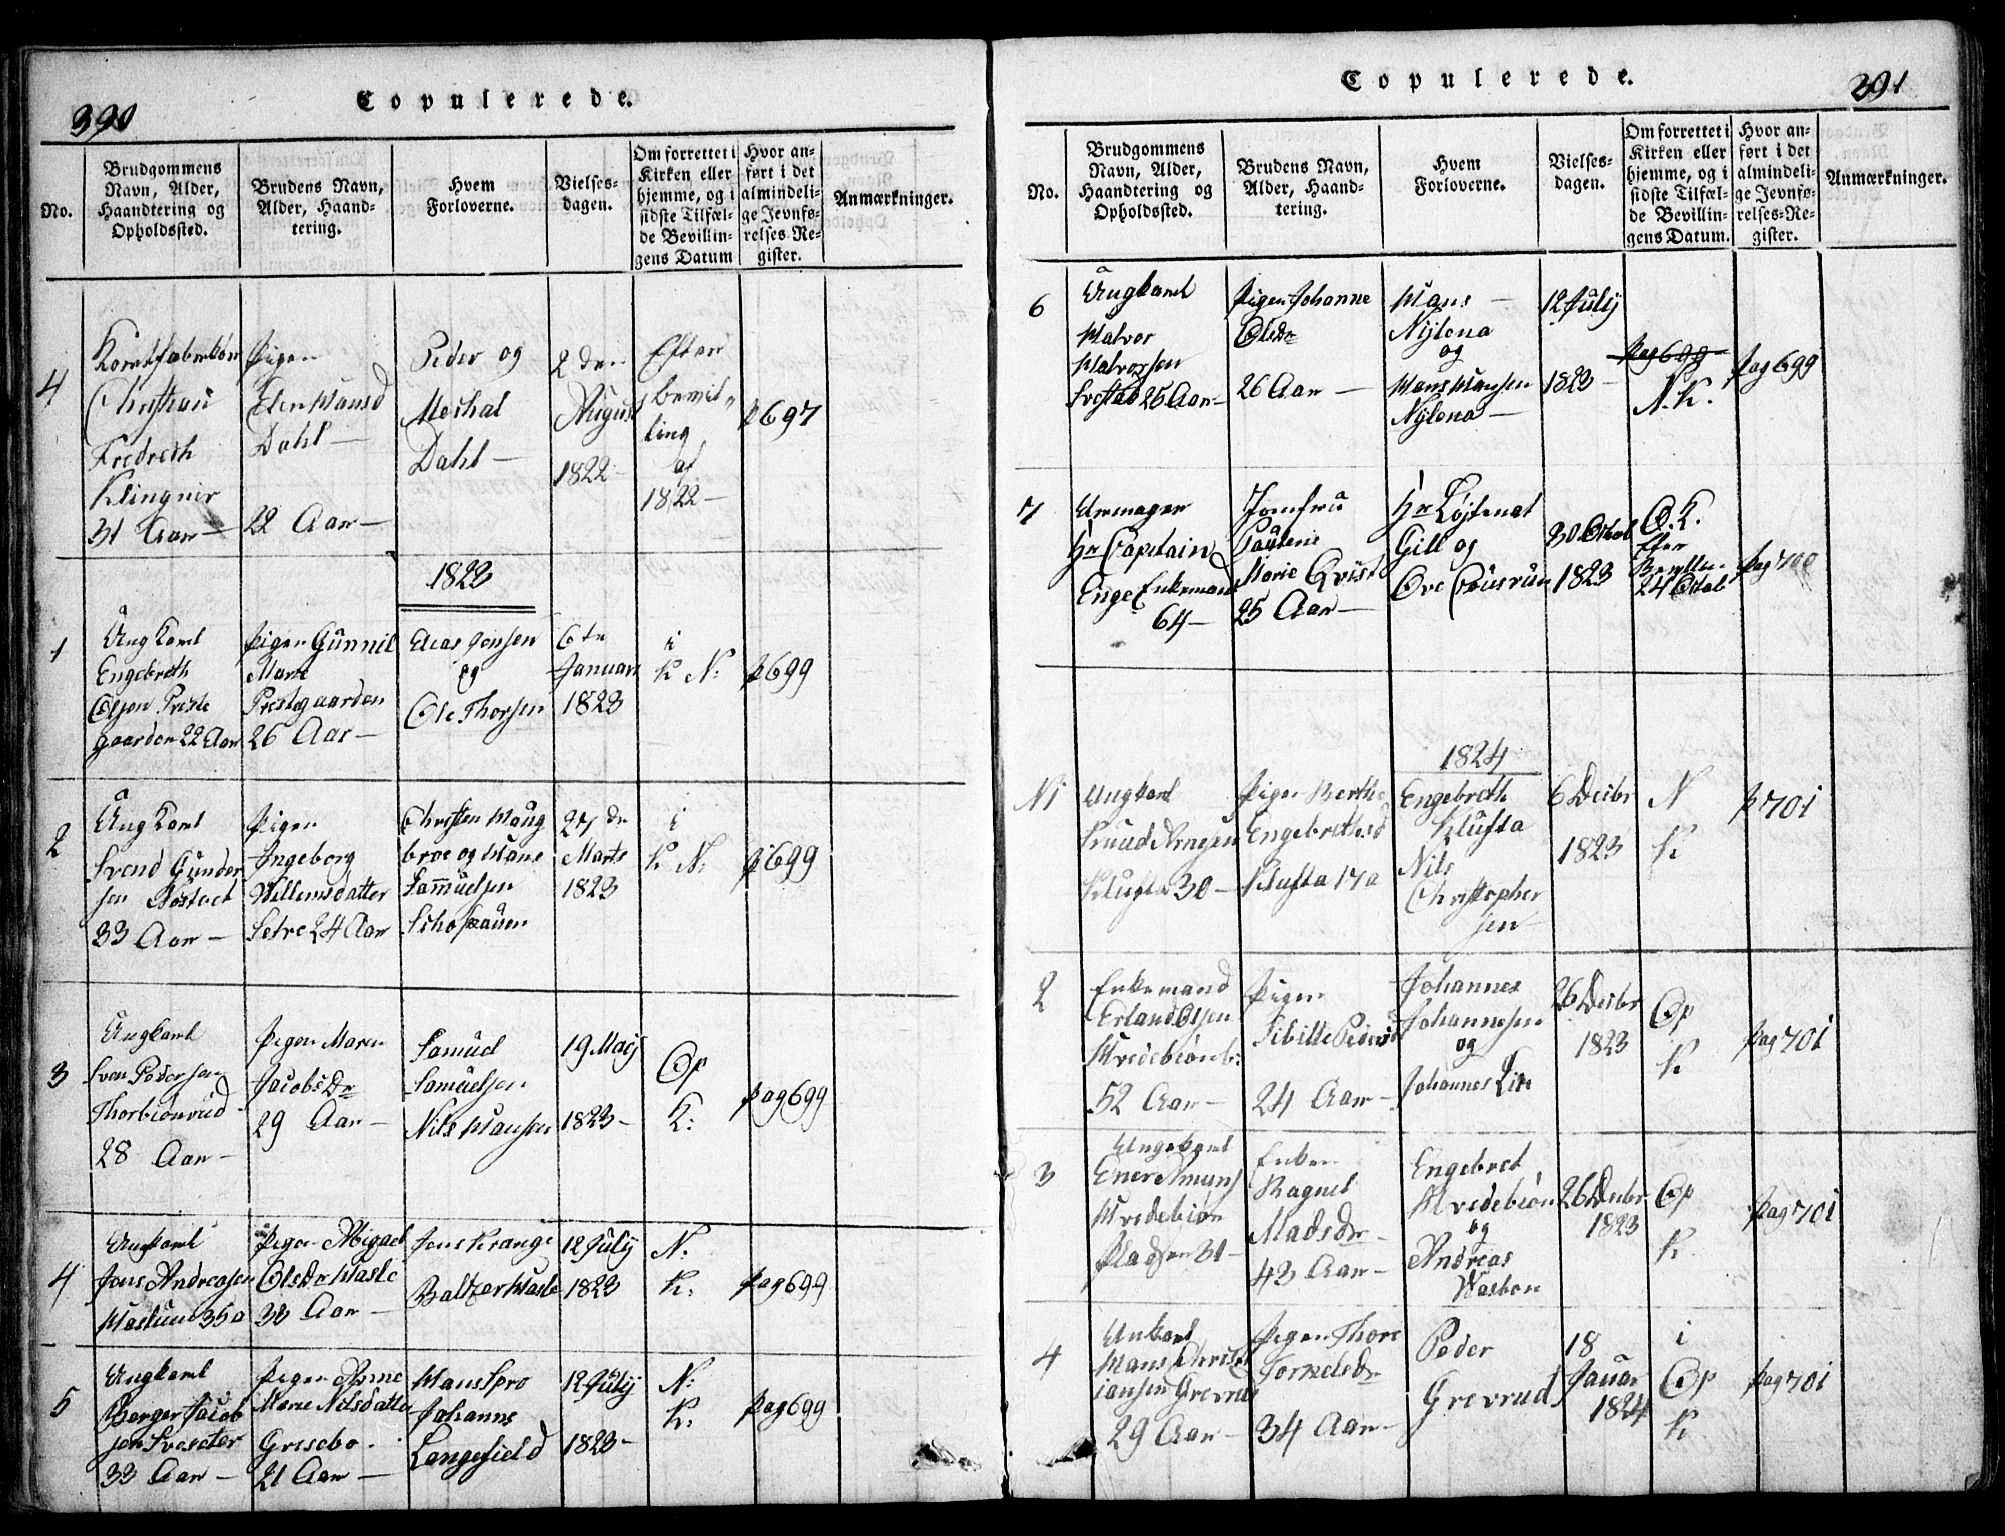 390
Copulerede.
No.
Brudgommens Navn, Alder, Haandtering og Opholdssted.
Brudens Navn, Alder, Haandtering.
Hvem Forloverne.
Vielsesdagen.
Om forrettet i Kirken eller hjemme, og i sidste Tilfælde Bevillingens Datum
Hvor anført i det almindelige Jevnførelses-Register.
Anmærkninger.
4
Christian
Fredreth
Klingner
31 Aar
Pigen
Elen Hansd
Dahl
22 Aar
Peder og
Meshal
Dahl
2den
August
1822
Efter
bewil-
ling
af
1822
p 697
1823
1
Ung Karl
Engebreth
Olsen Preste
gaarden 22 Aar
Pigen Gunnil
Marie
Prestegaarden
26 Aar
Elias Jensen
og
Ole Thorsen
6te
Januari
1823
i
K N:
p 699
2
Ung Karl
Svend Gunder
sen
33 Aar
Pigen
Ingeborg
Willemsdatter
Setre 24 Aar
Christen Haug
broe og Hans
Sammuelsen
27de
Marts
1823
i
K N:
p 699
3
Ungkarl
Sven Pedersen
Thorbiönrud
28 Aar
Pigen Maren
Jacobs Dr
29 Aar
Samuel
Samuelsen
Nils Hansen
19 Maij
1823
Op
K:
pag 699
4
Ungkarl
Jens Andreasen
Haslum 35 a
Pigen Abigael
Olsdr Hasle
30 Aar
Jens Krange
Baltzer Hasle
12 Julij
1823
N:
K:
pag 699
5
Ungkarl
Borger Jacob
sen
33 Aar
Pigen Anne
Marie Nilsdatter
Gresebo
21 Aar
Hans Spro
Johanns
Langefield
12 Julij
1823
N:
K:
pag 699
Copulerede.
391
No.
Brudgommens Navn, Alder, Haandtering og Opholdssted.
Brudens Navn, Alder, Haandtering.
Hvem Forloverne.
Vielsesdagen.
Om forrettet i Kirken eller hjemme, og i sidste Tilfælde Bevillingens Datum.
Hvor anført i det almindelige Jevnførelses-Register.
Anmærkninger.
6
Ungkarl
Halvor
Halvorsen
Svestad 25 Aar
Pigen Johanne
Olsdr
26 Aar
Hans
Nylena
og
Hans Hansen
Nylena
12 Julij
1823
pag 699
N. K.
pag 699
7
Hr Captain
Enge Enkemand
64
Jomfru
Pauline
Marie Qvist
25 Aar
Hr Löjtenat
Gill og
Ove
30 Octob
1823
O. K.
Efter
24 Octob
pag 700
1824
N 1
Ungkarl
Knud
Klufta 30
Pigen Berthe
Engebrethsd
Klufta 17 a
Engebreth
Klufta
Nils
Christopher
sen
6 Desbr
1823
N
K
p 701
2
Enkemand
Erland Olsen
52 Aar
Pigen
Sibille Pedersd
24 Aar
Johannes
Johannesen
og
Johannes Lie
26 Desbr
1823
Op
K
pag 701
3
Ungekarl
Hvidebiön
Pladsen 31
Enken
Ragnel
Mads dr
43 Aar
Engebret
Hvidebiön
og
Andreas
26 Desbr
1823
Op
K
pag 701
4
Unkarl
Hans Christ
iansen Grevrud
29 Aar
Pigen Thore
Tornelsdr
34 Aar
Peder
Grevrud
18
Januar
1824
i
Op
K
pag 701